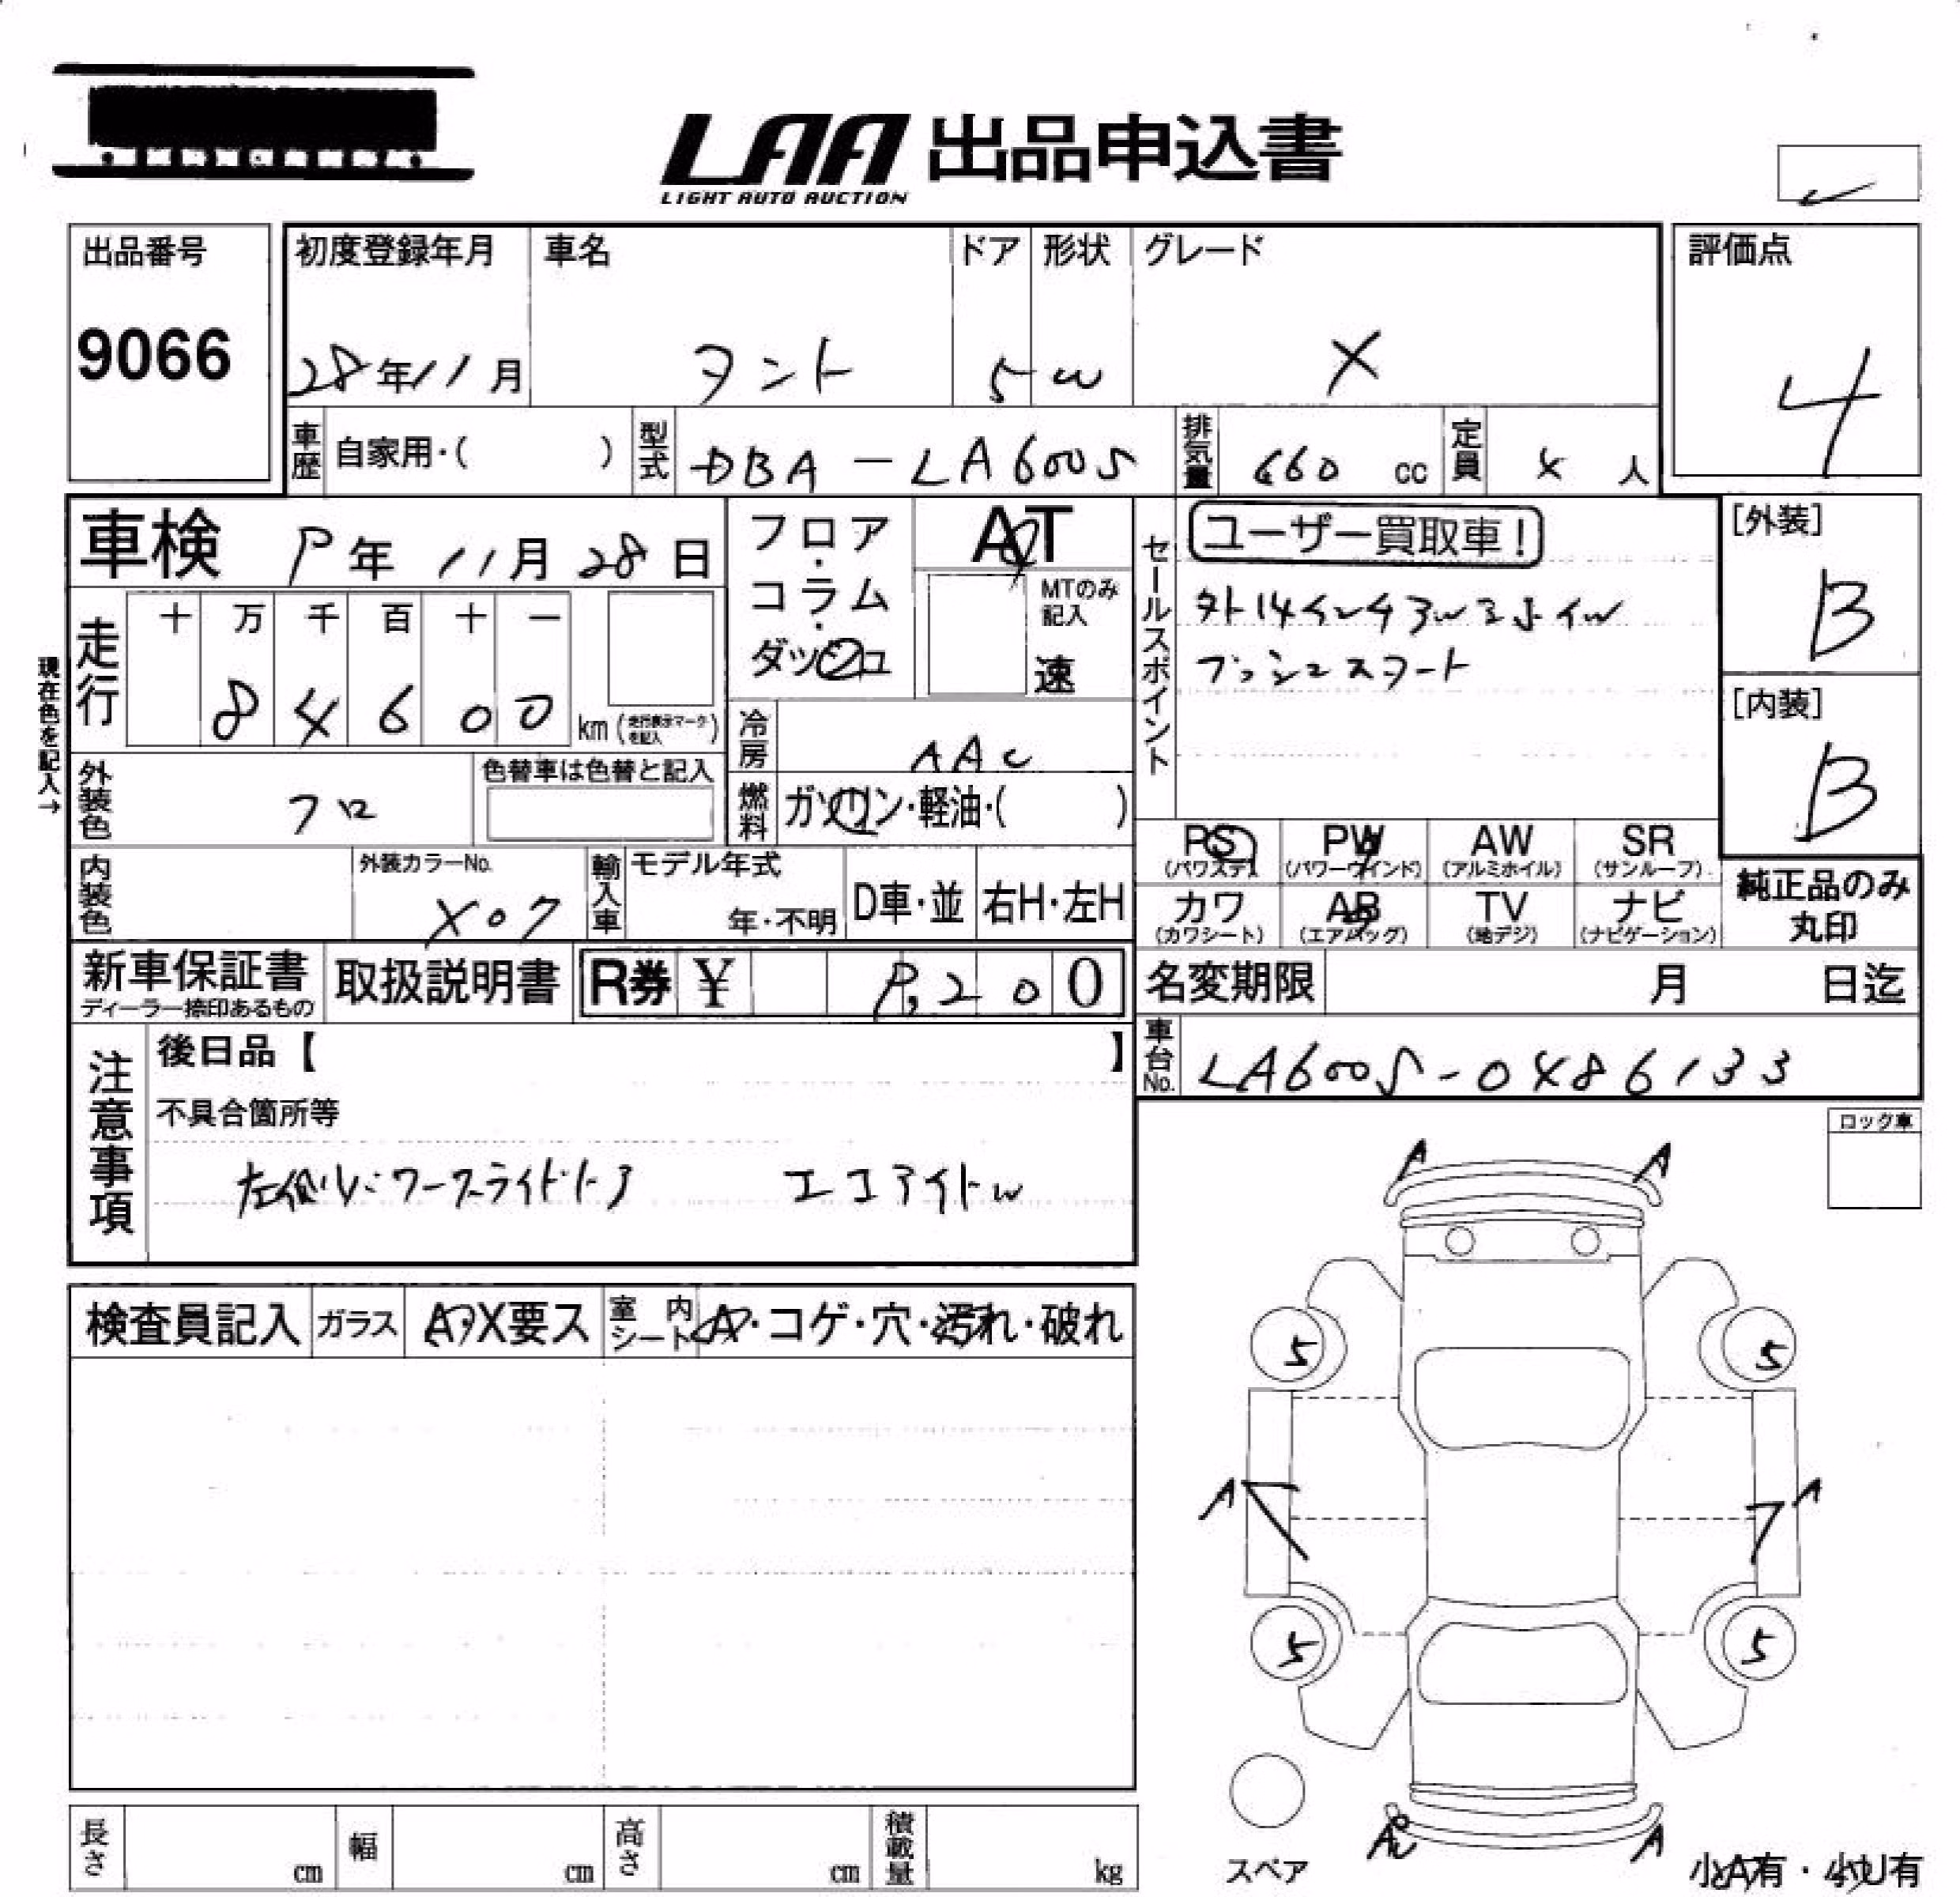 LAA 出品申込書
LIGHT AUTO AUCTION
出品番号
9066
初度登録年月
28年11月
車名
タント
ドア
5
形状
W
グレード
X
評価点
4
車歴
自家用・( )
型式
DBA-LA600S
排気量
660 cc
定員
4 人
車検 9年 11月 28日
フロア・コラム・ダッシュ
AT
MTのみ記入
速
セールスポイント
ユーザー買取車!
プッシュスタート
[外装]
B
[内装]
B
現在色を記入→
走行
十 万 千 百 十 一
8 4 6 0 0
km (走行表示マークを記入)
冷房
AAC
燃料
ガソリン・軽油・( )
外装色
クロ
色替車は色替と記入
内装色
外装カラーNo.
X07
輸入車
モデル年式
年・不明
D車・並
右H・左H
PS
(パワステ)
PW
(パワーウインド)
AW
(アルミホイル)
SR
(サンルーフ)
カワ
(カワシート)
AB
(エアバッグ)
TV
(地デジ)
ナビ
(ナビゲーション)
純正品のみ
丸印
新車保証書
ディーラー捺印あるもの
取扱説明書
R券 ¥ 9,200
名変期限 月 日迄
車台No.
LA600S-0486133
注意事項
後日品【 】
不具合箇所等
左側パワースライドドア エコアイドル
ロック車
A A
検査員記入
ガラス
A・X要ス
室内シート
A・コゲ・穴・汚れ・破れ
5 5
A A
5 5
スペア
A
小A有・小U有
長さ cm
幅 cm
高さ cm
積載量 kg